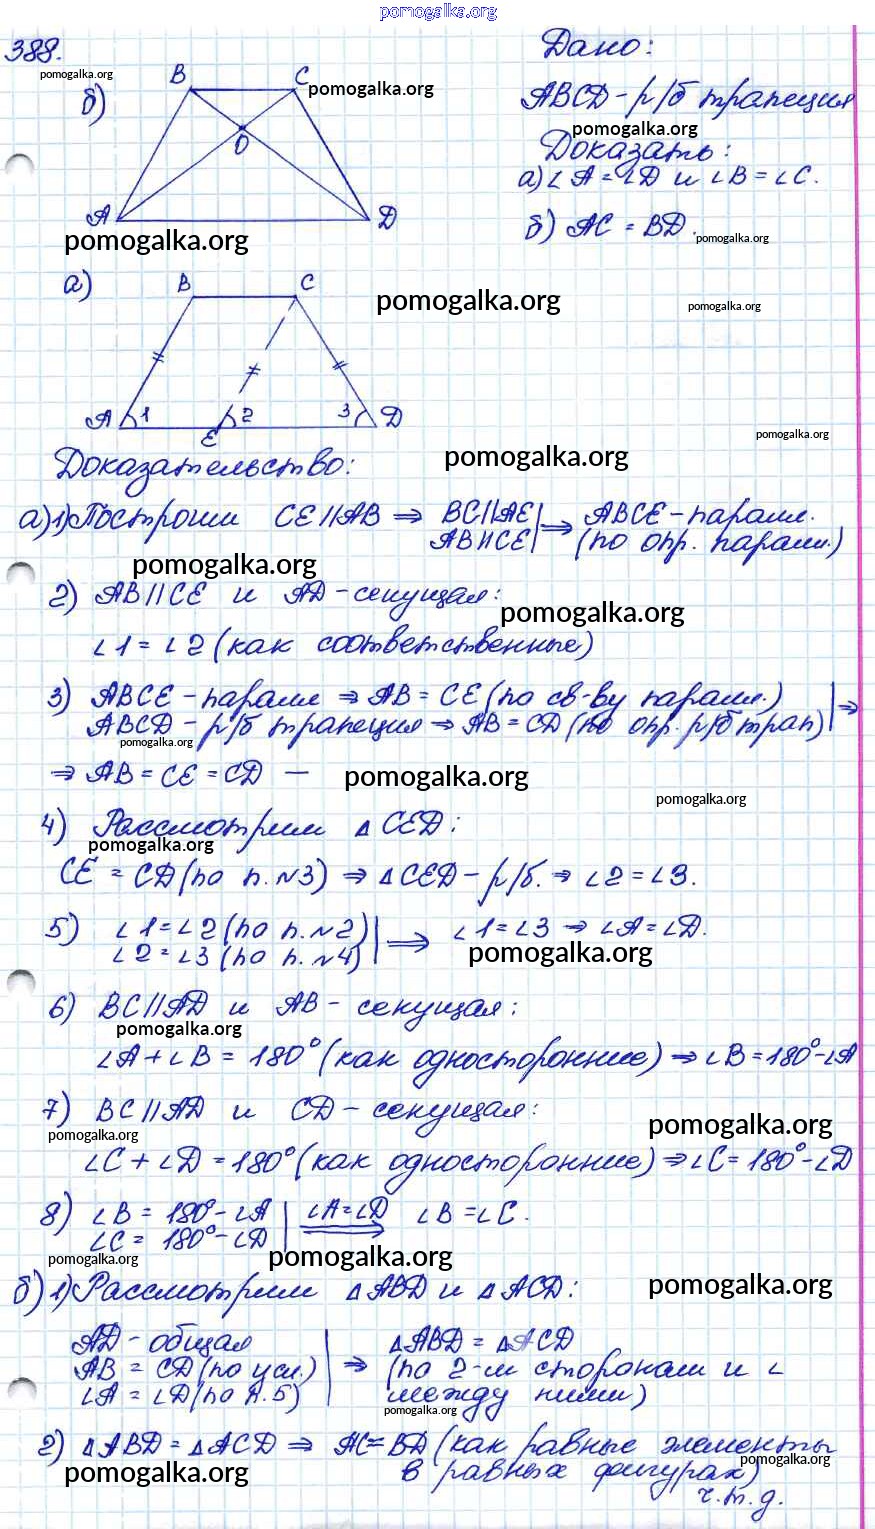 pomogalka.org
388.
Дано:
pomogalka.org
б)
B
C
pomogalka.org
ABCD - р/б трапеция
pomogalka.org
O
Доказать:
а) ∠A = ∠D и ∠B = ∠C.
A
D
б) AC = BD.
pomogalka.org
pomogalka.org
а)
B
C
pomogalka.org
pomogalka.org
A
1
E
2
3
D
pomogalka.org
Доказательство:
pomogalka.org
а) 1) Построим CE || AB ⇒ BC || AE | ⇒ ABCE - парал.
AB || CE | (по опр. парал.)
pomogalka.org
2) AB || CE и AD - секущая:
pomogalka.org
∠1 = ∠2 (как соответственные)
3) ABCE - парал ⇒ AB = CE (по св-ву парал.) | ⇒
ABCD - р/б трапеция ⇒ AB = CD (по опр. р/б трап)
pomogalka.org
⇒ AB = CE = CD —
pomogalka.org
pomogalka.org
4) Рассмотрим △ CED:
pomogalka.org
CE = CD (по п. №3) ⇒ △CED - р/б. ⇒ ∠2 = ∠3.
5) ∠1 = ∠2 (по п. №2) | ⇒ ∠1 = ∠3 ⇒ ∠A = ∠D.
∠2 = ∠3 (по п. №4)
pomogalka.org
6) BC || AD и AB - секущая:
pomogalka.org
∠A + ∠B = 180° (как односторонние) ⇒ ∠B = 180° - ∠A
7) BC || AD и CD - секущая:
pomogalka.org
pomogalka.org
∠C + ∠D = 180° (как односторонние) ⇒ ∠C = 180° - ∠D
8) ∠B = 180° - ∠A | ∠A = ∠D ⇒ ∠B = ∠C.
∠C = 180° - ∠D
pomogalka.org
pomogalka.org
б) 1) Рассмотрим △ ABD и △ ACD:
pomogalka.org
AD - общая | △ABD = △ACD
AB = CD (по усл.) | ⇒ (по 2-м сторонам и ∠
∠A = ∠D (по п. 5) | между ними)
pomogalka.org
2) △ABD = △ACD ⇒ AC = BD (как равные элементы
pomogalka.org
pomogalka.org
в равных фигурах)
ч.т.д.